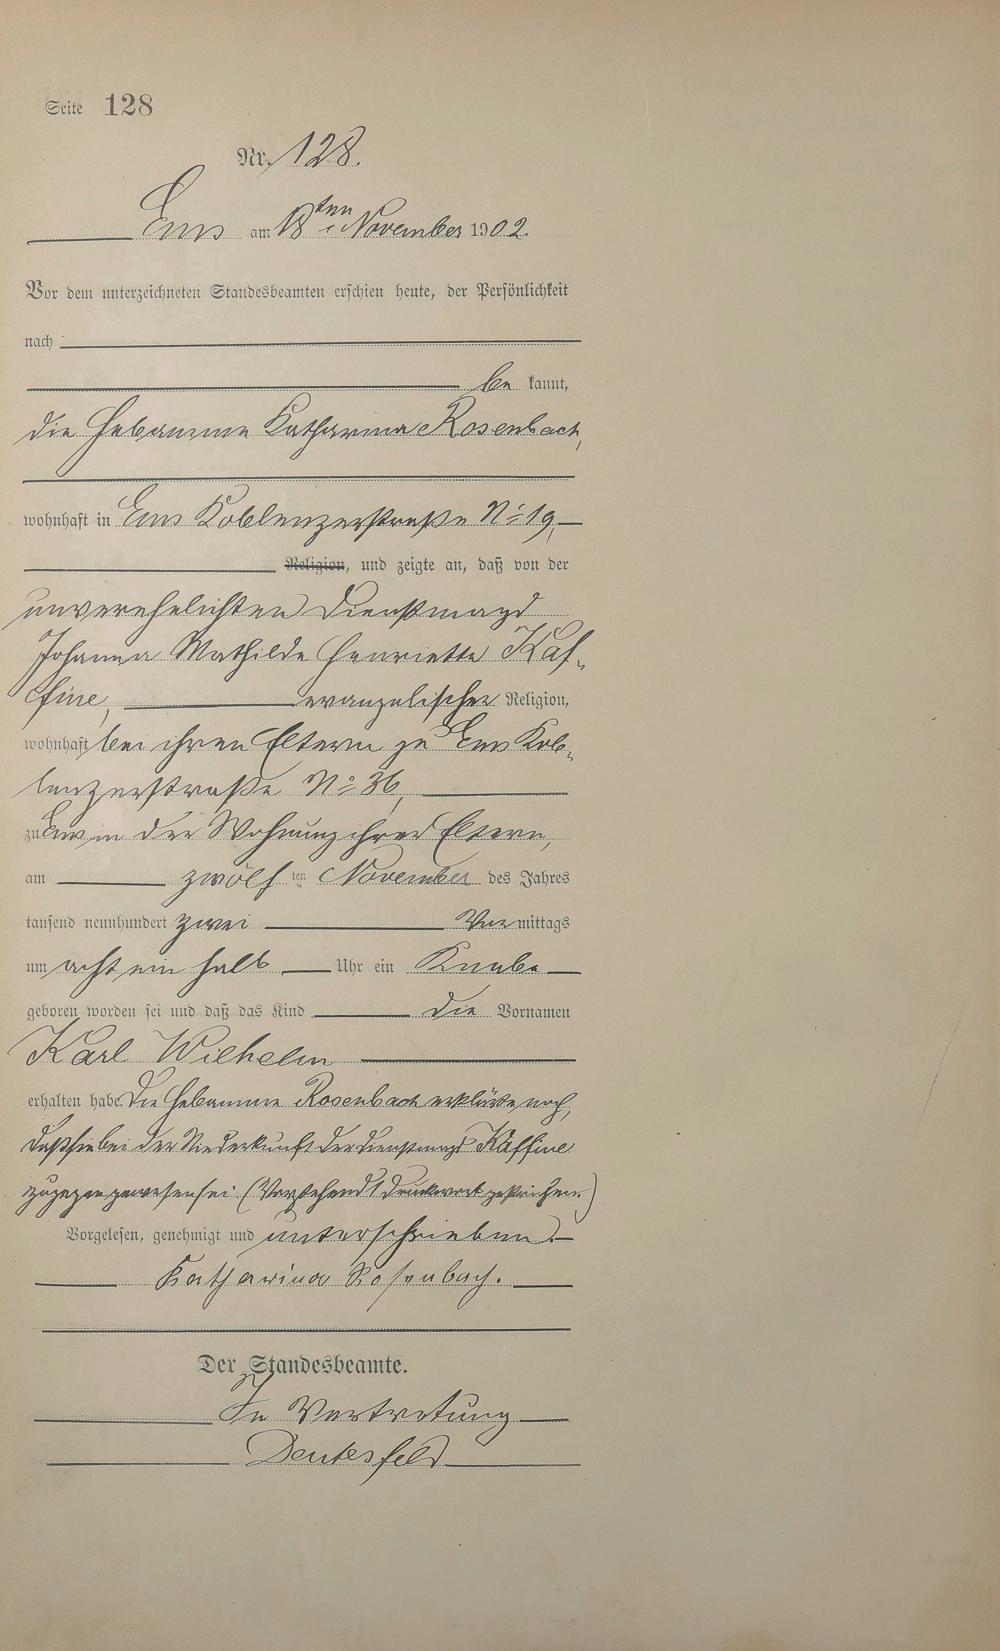 Seite 128
Nr. 128.
Ems am 18ten November 1902.
Vor dem unterzeichneten Standesbeamten erschien heute, der Persönlichkeit
nach
be kannt,
die Hebamme Katharina Rosenbach,
wohnhaft in Ems Koblenzerstraße No 19,
Religion, und zeigte an, daß von der
unverehelichten Dienstmagd
Johanna Mathilde Henriette Kaf-
fine, evangelischer Religion,
wohnhaft bei ihren Eltern zu Ems Kob-
lenzerstraße No 36,
zu Ems in der Wohnung ihrer Eltern,
am zwölf ten November des Jahres
tausend neunhundert zwei Vor mittags
um acht ein halb Uhr ein Knabe
geboren worden sei und daß das Kind die Vornamen
Karl Wilhelm
erhalten habe. Die Hebamme Rosenbach erklärte noch,
daß sie bei der Niederkunft der Dienstmagd Kaffine
zugegen gewesen sei. (Vorstehend 1 Druckwort gestrichen.)
Vorgelesen, genehmigt und unterschrieben.
Katharina Rosenbach.
Der Standesbeamte.
In Vertretung